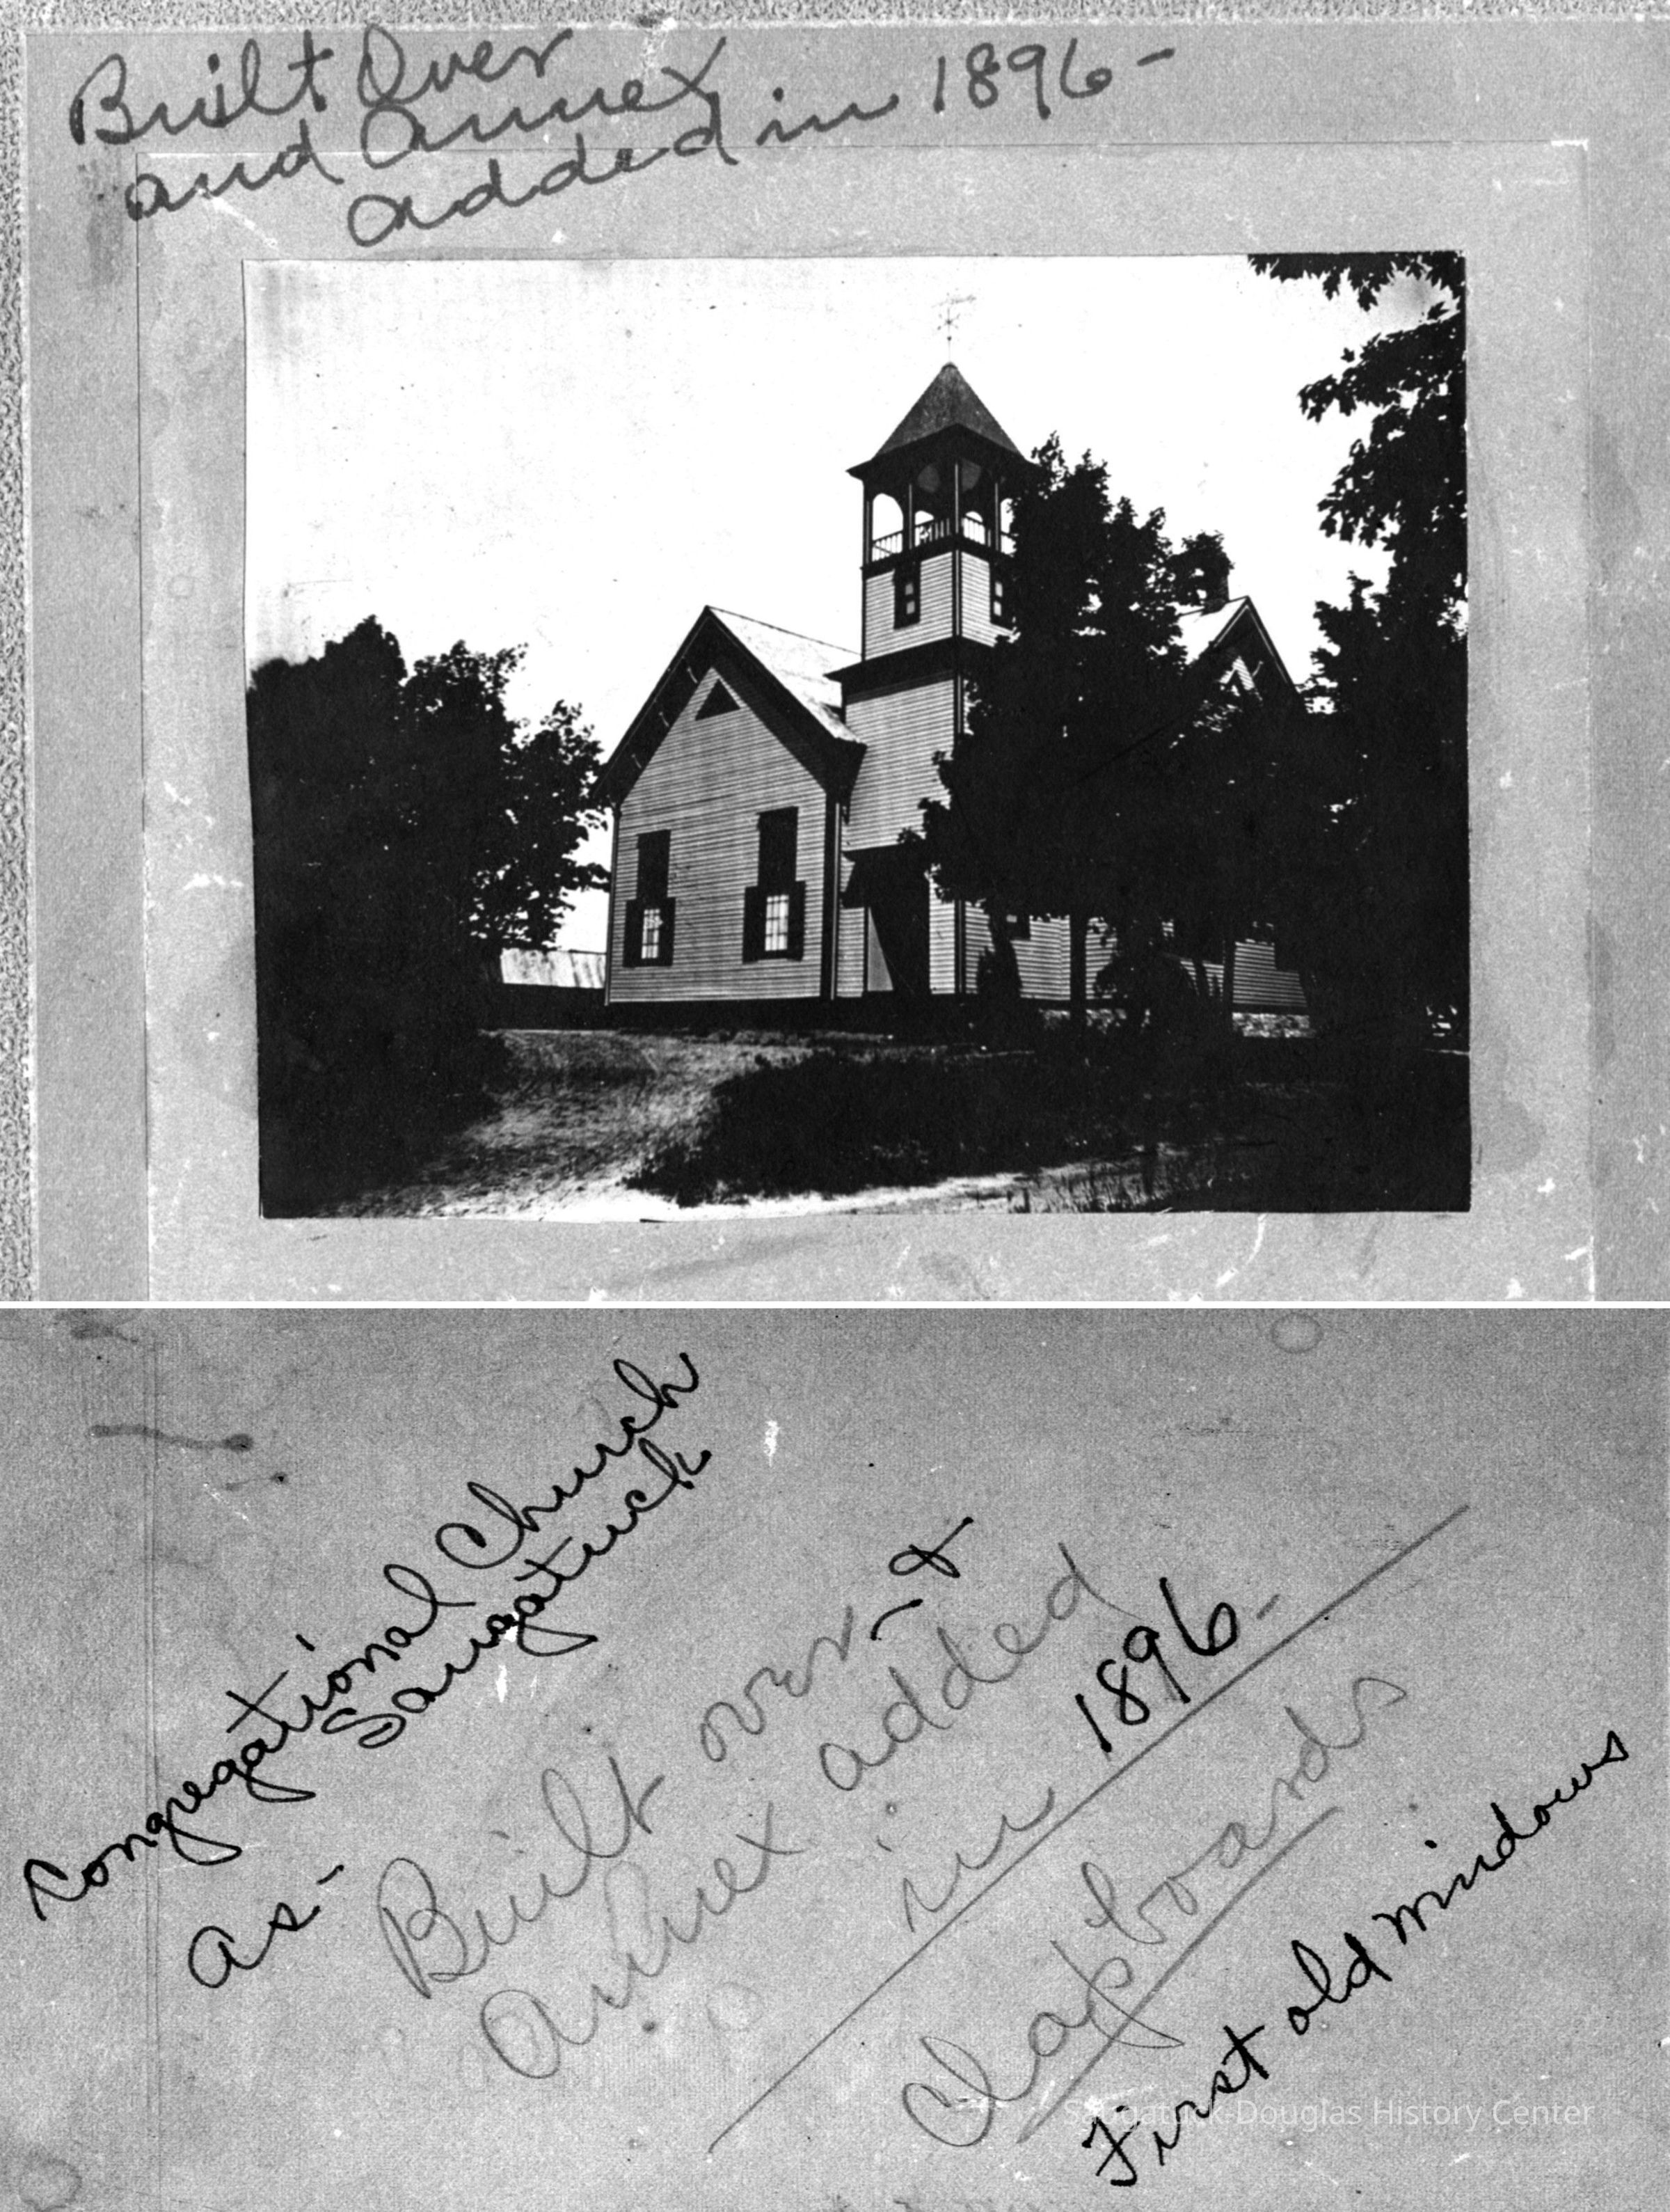 Built Over
and Annex
added in 1896-
Congregational Church
Saugatuck
As-
Built over - &
Annex added
in 1896-
Clapboards
First old windows
Saugatuck-Douglas History Center